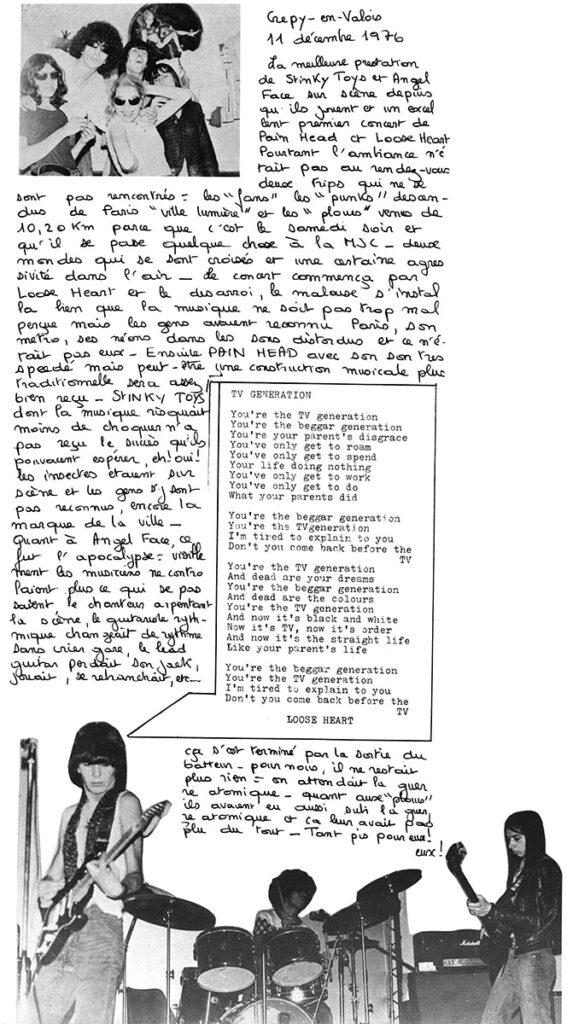 Crepy-en-Valois
11 décembre 1976
La meilleure prestation
de Stinky Toys et Angel
Face sur scène depuis
qu'ils jouent et un excel
lent premier concert de
Pain Head et Loose Heart
Pourtant l'ambiance n'é
tait pas au rendez-vous
deux trips qui ne se
sont pas rencontrés = les "fans" les "punks" descen-
dus de Paris "ville lumière" et les "plous" venus de
10,20 Km parce que c'est le samedi soir et
qu'il se passe quelque chose à la MJC - deux
mondes qui se sont croisés et une certaine agres
sivité dans l'air - le concert commença par
Loose Heart et le desarroi, le malaise s'instal
la bien que la musique ne soit pas trop mal
perçue mais les gens avaient reconnu Paris, son
métro, ses néons dans les sons distordus et ce n'é-
tait pas eux - Ensuite PAIN HEAD avec son son très
speedé mais peut-être une construction musicale plus
traditionnelle sera assez
bien reçu - STINKY TOYS
dont la musique risquait
moins de choquer n'a
pas reçu le succès qu'ils
pouvaient espérer, eh! oui!
les insectes étaient sur
scène et les gens s'y sont
pas reconnus, encore la
marque de la ville -
Quant à Angel Face, ce
fut l'apocalypse = visible
ment les musiciens ne contro
laient plus ce qui se pas
saient, le chanteur arpentant
la scène, le guitariste ryth-
mique changeait de rythme
sans crier gare, le lead
guitar perdait son jack,
jouait, se rebranchait, etc...
TV GENERATION
You're the TV generation
You're the beggar generation
You're your parent's disgrace
You've only get to roam
You've only get to spend
Your life doing nothing
You've only get to work
You've only get to do
What your parents did
You're the beggar generation
You're the TVgeneration
I'm tired to explain to you
Don't you come back before the
TV
You're the TV generation
And dead are your dreams
You're the beggar generation
And dead are the colours
You're the TV generation
And now it's black and white
Now it's TV, now it's order
And now it's the straight life
Like your parent's life
You're the beggar generation
You're the TV generation
I'm tired to explain to you
Don't you come back before the
TV
LOOSE HEART
ça s'est terminé par la sortie du
batteur - pour nous, il ne restait
plus rien = on attendait la guer
re atomique - quant aux "plous"
ils avaient eu aussi subi la guer
re atomique et ça leur avait pas
plu du tout - Tant pis pour eux!
eux!
Marshall